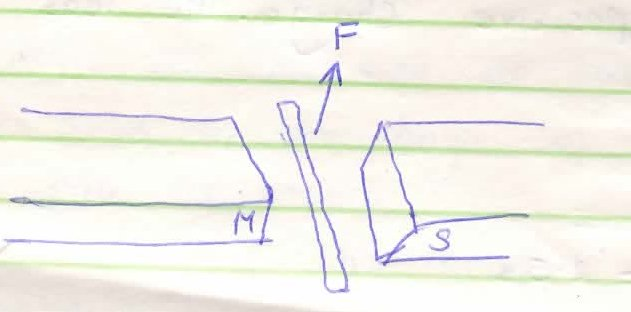 F
M
S